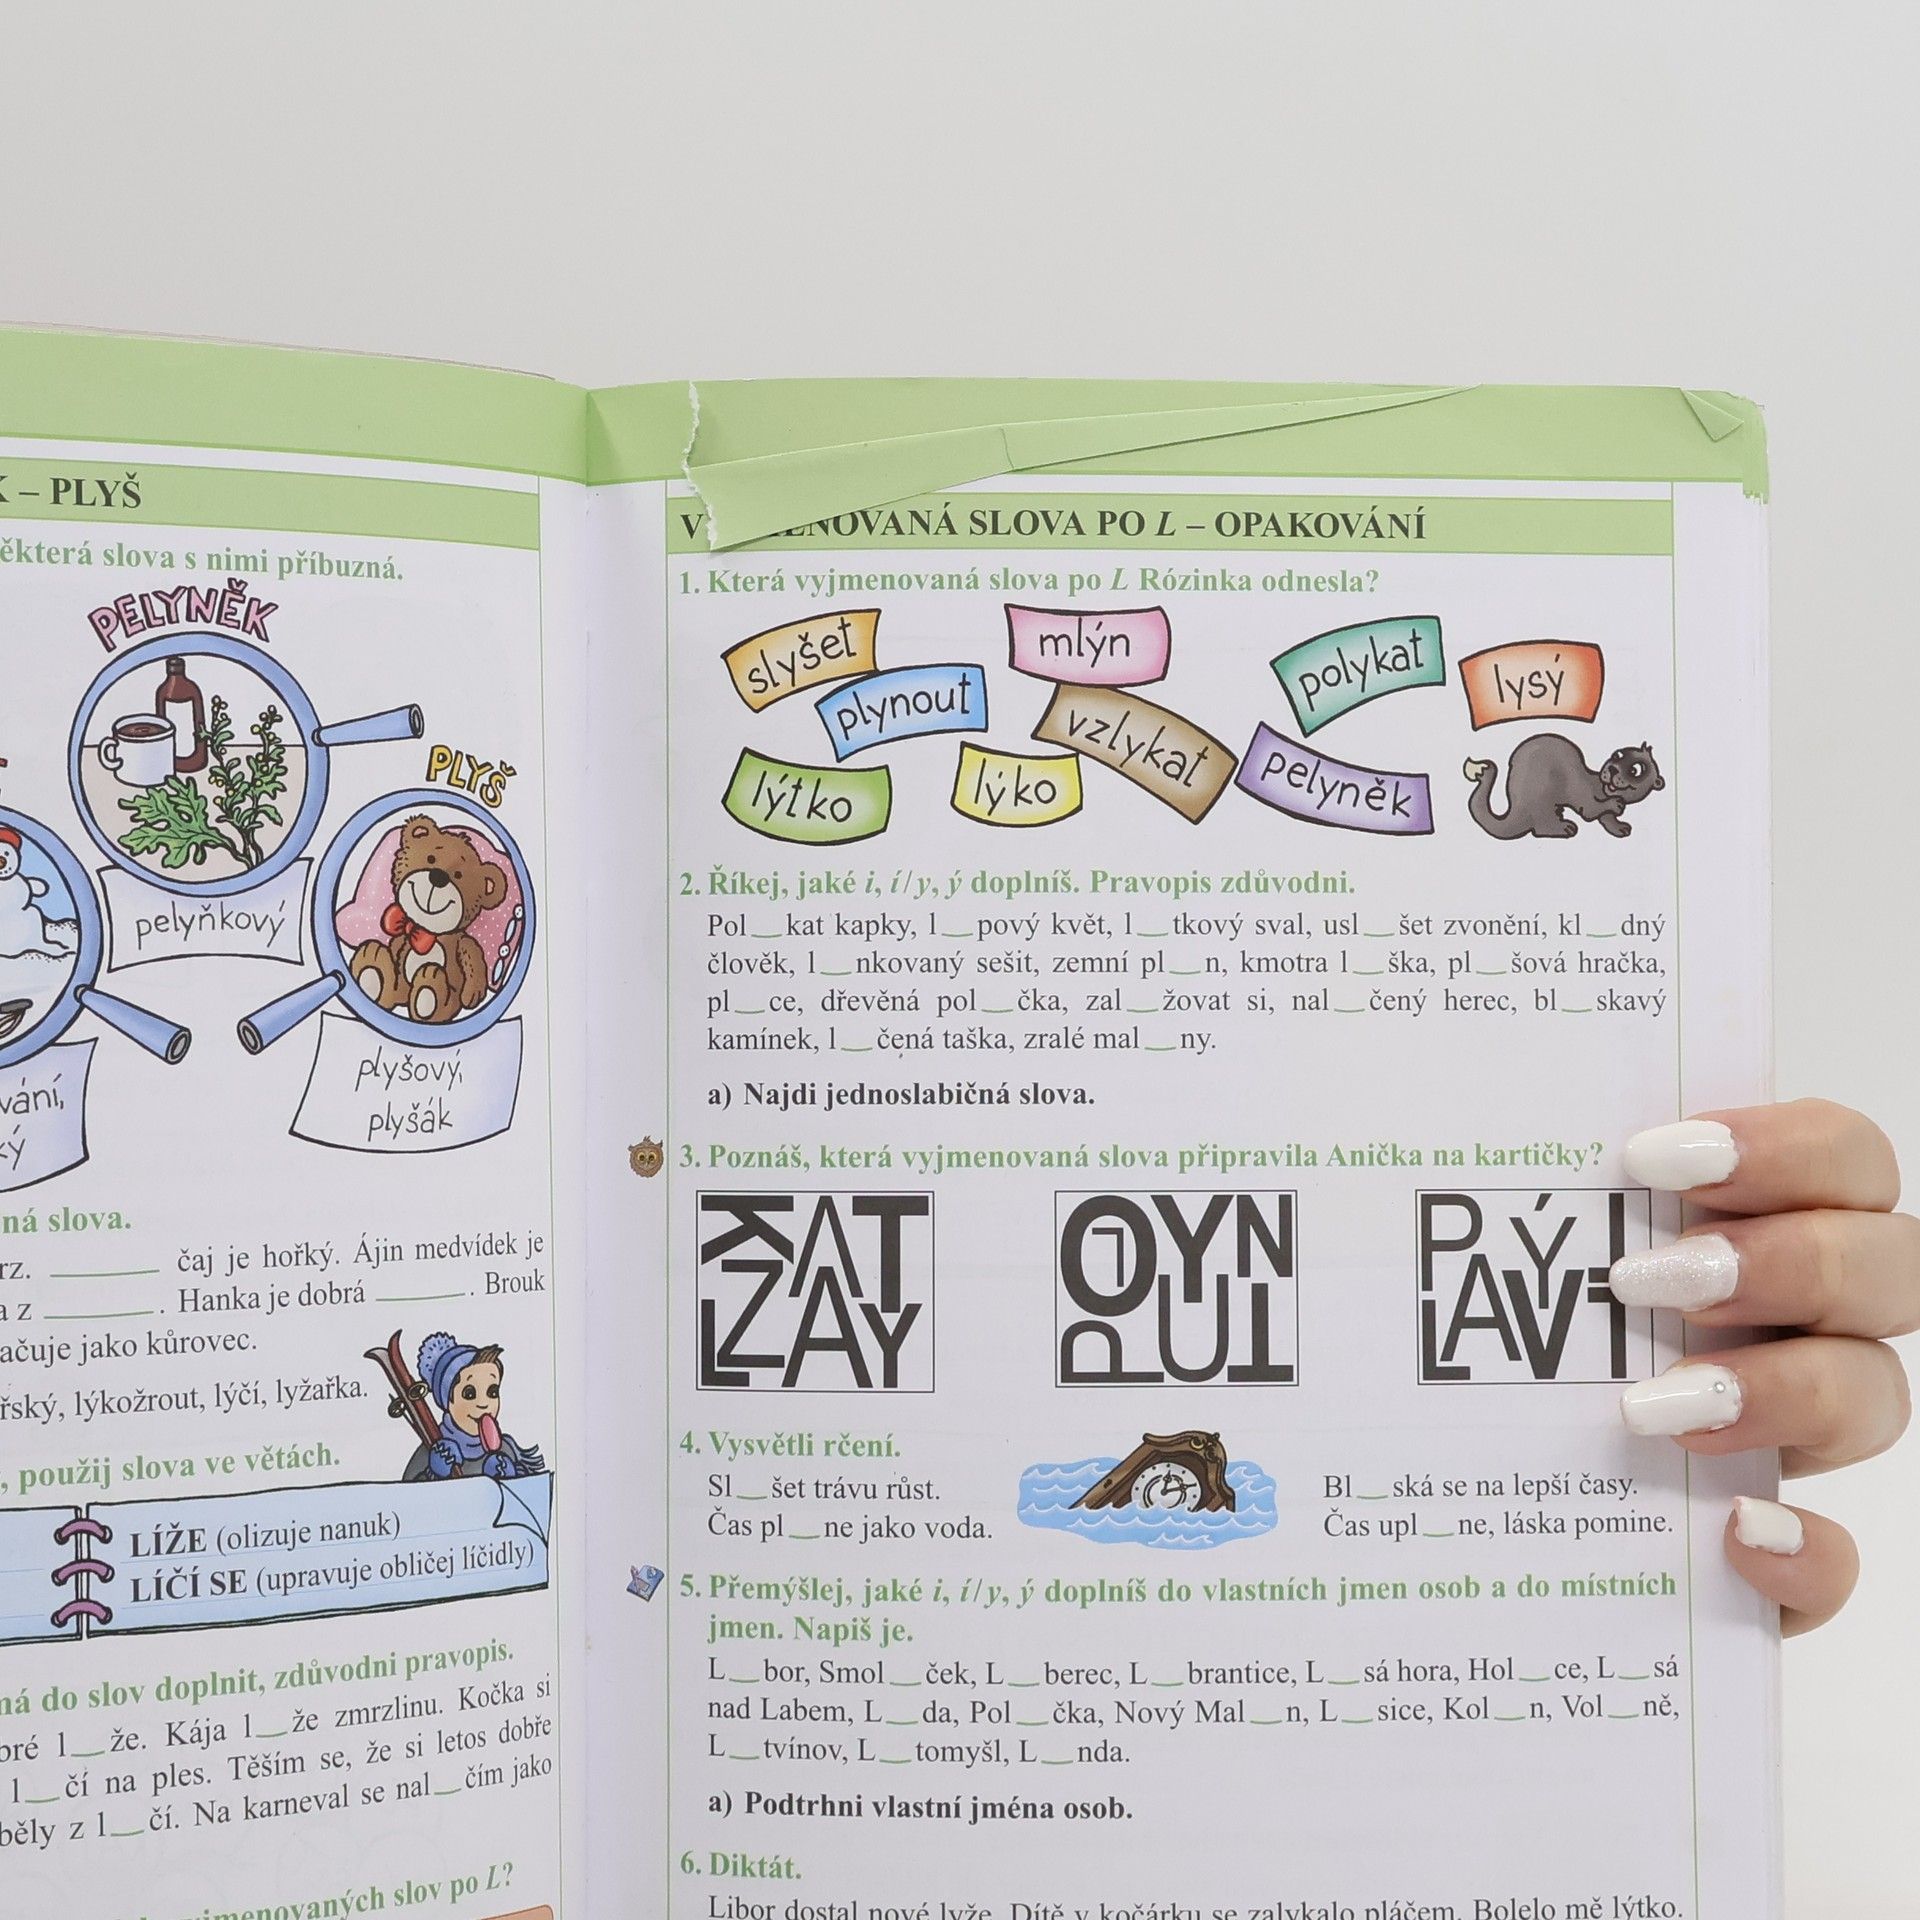 – PLYŠ
ěkterá slova s nimi příbuzná.
PELYNĚK
PLYŠ
pelyňkový
plyšový,
plyšák
vání,
ná slova.
rz. ________ čaj je hořký. Ájin medvídek je
a z ________. Hanka je dobrá ________. Brouk
ačuje jako kůrovec.
řský, lýkožrout, lýčí, lyžařka.
, použij slova ve větách.
LÍŽE (olizuje nanuk)
LÍČÍ SE (upravuje obličej líčidly)
ná do slov doplnit, zdůvodni pravopis.
bré l__že. Kája l__že zmrzlinu. Kočka si
l__čí na ples. Těším se, že si letos dobře
běly z l__čí. Na karneval se nal__čím jako
jmenovaných slov po L?
NOVANÁ SLOVA PO L – OPAKOVÁNÍ
1. Která vyjmenovaná slova po L Rózinka odnesla?
slyšet
mlýn
polykat
lysý
plynout
vzlykat
lýtko
lýko
pelyněk
2. Říkej, jaké i, í/y, ý doplníš. Pravopis zdůvodni.
Pol__kat kapky, l__pový květ, l__tkový sval, usl__šet zvonění, kl__dný
člověk, l__nkovaný sešit, zemní pl__n, kmotra l__ška, pl__šová hračka,
pl__ce, dřevěná pol__čka, zal__žovat si, nal__čený herec, bl__skavý
kamínek, l__čená taška, zralé mal__ny.
a) Najdi jednoslabičná slova.
3. Poznáš, která vyjmenovaná slova připravila Anička na kartičky?
KAT
LZAAY
OLYN
PUT
PÝ
LAVT
4. Vysvětli rčení.
Sl__šet trávu růst.
Čas pl__ne jako voda.
Bl__ská se na lepší časy.
Čas upl__ne, láska pomine.
5. Přemýšlej, jaké i, í/y, ý doplníš do vlastních jmen osob a do místních
jmen. Napiš je.
L__bor, Smol__ček, L__berec, L__brantice, L__sá hora, Hol__ce, L__sá
nad Labem, L__da, Pol__čka, Nový Mal__n, L__sice, Kol__n, Vol__ně,
L__tvínov, L__tomyšl, L__nda.
a) Podtrhni vlastní jména osob.
6. Diktát.
Libor dostal nové lyže. Dítě v kočárku se zalykalo pláčem. Bolelo mě lýtko.